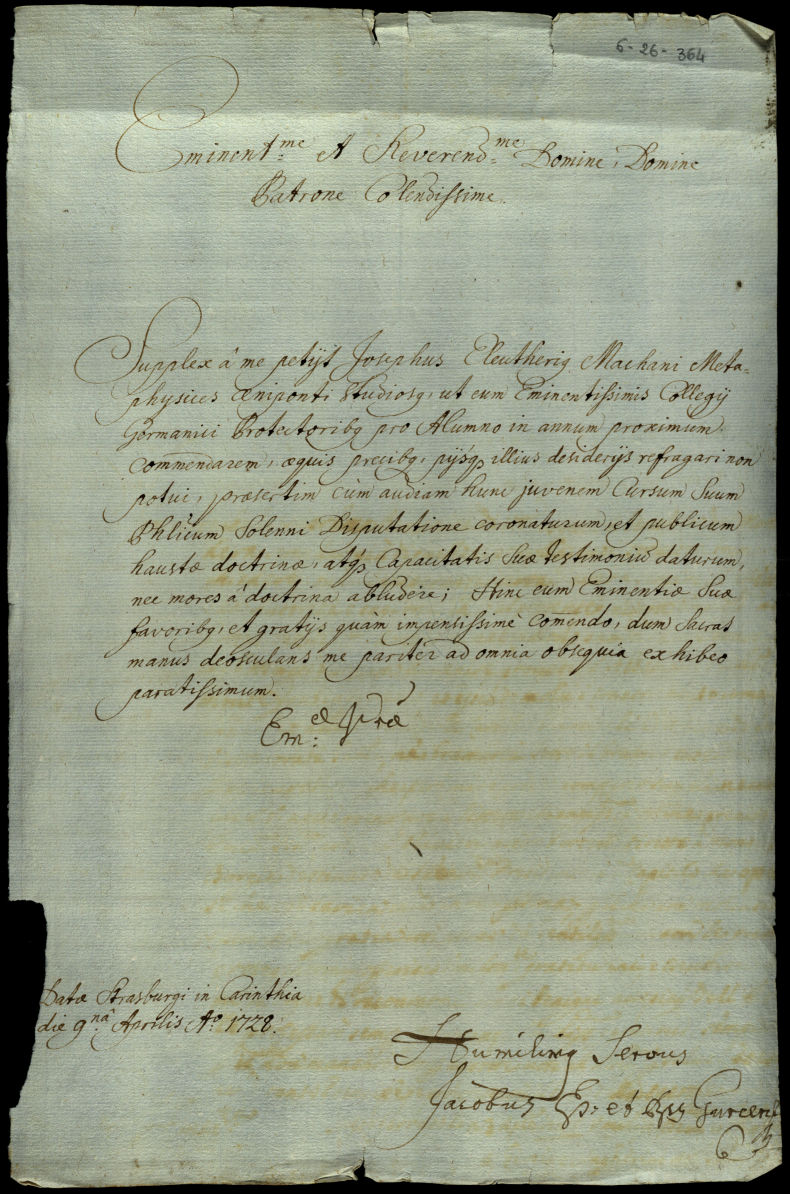 6-26-364
Eminent.me et Reverend.me Domine, Domine
Patrone Colendissime.
Supplex à me petijt Josephus Eleutherig Machani Meta=
physices Œniponti studiosq, ut eum Eminentissimis Collegij
Germanici Protectoribq pro Alumno in annum proximum
commendarem, æquis precibq, pijsq illius desiderijs refragari non
potui, præsertim cùm audiam hunc juvenem Cursum Suum
Phlicum Solenni Disputatione coronaturum, et publicum
haustæ doctrinæ, atq Capacitatis Suæ testimoniū daturum,
nec mores à doctrina abludere; Hinc eum Eminentiæ Suæ
favoribq, et gratijs quàm impensissimè com̄endo, dum Sacras
manus deosculans me paritèr ad omnia obsequia exhibeo
paratissimum.
Em:æ Vræ
Datæ Strasburgi in Carinthia
die 9.nâ Aprilis Aº 1728.
Humilimq Servus
Jacobus Ep: et Gurcens